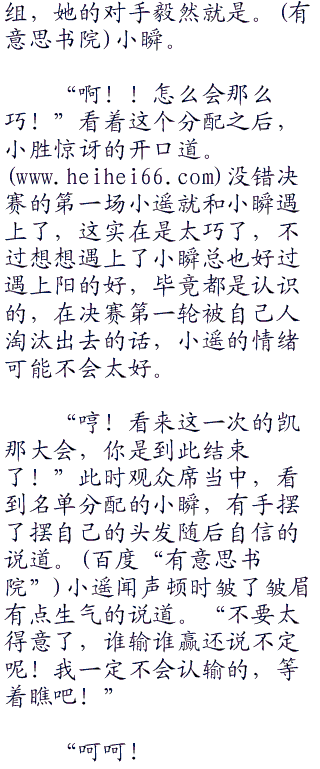 组，她的对手毅然就是。(有
意思书院)小瞬。
“啊！！怎么会那么
巧！”看着这个分配之后，
小胜惊讶的开口道。
(www.heihei66.com)没错决
赛的第一场小遥就和小瞬遇
上了，这实在是太巧了，不
过想想遇上了小瞬总也好过
遇上阳的好，毕竟都是认识
的，在决赛第一轮被自己人
淘汰出去的话，小遥的情绪
可能不会太好。
“哼！看来这一次的凯
那大会，你是到此结束
了！”此时观众席当中，看
到名单分配的小瞬，有手摆
了摆自己的头发随后自信的
说道。(百度“有意思书
院”)小遥闻声顿时皱了皱眉
有点生气的说道。“不要太
得意了，谁输谁赢还说不定
呢！我一定不会认输的，等
着瞧吧！”
“呵呵！